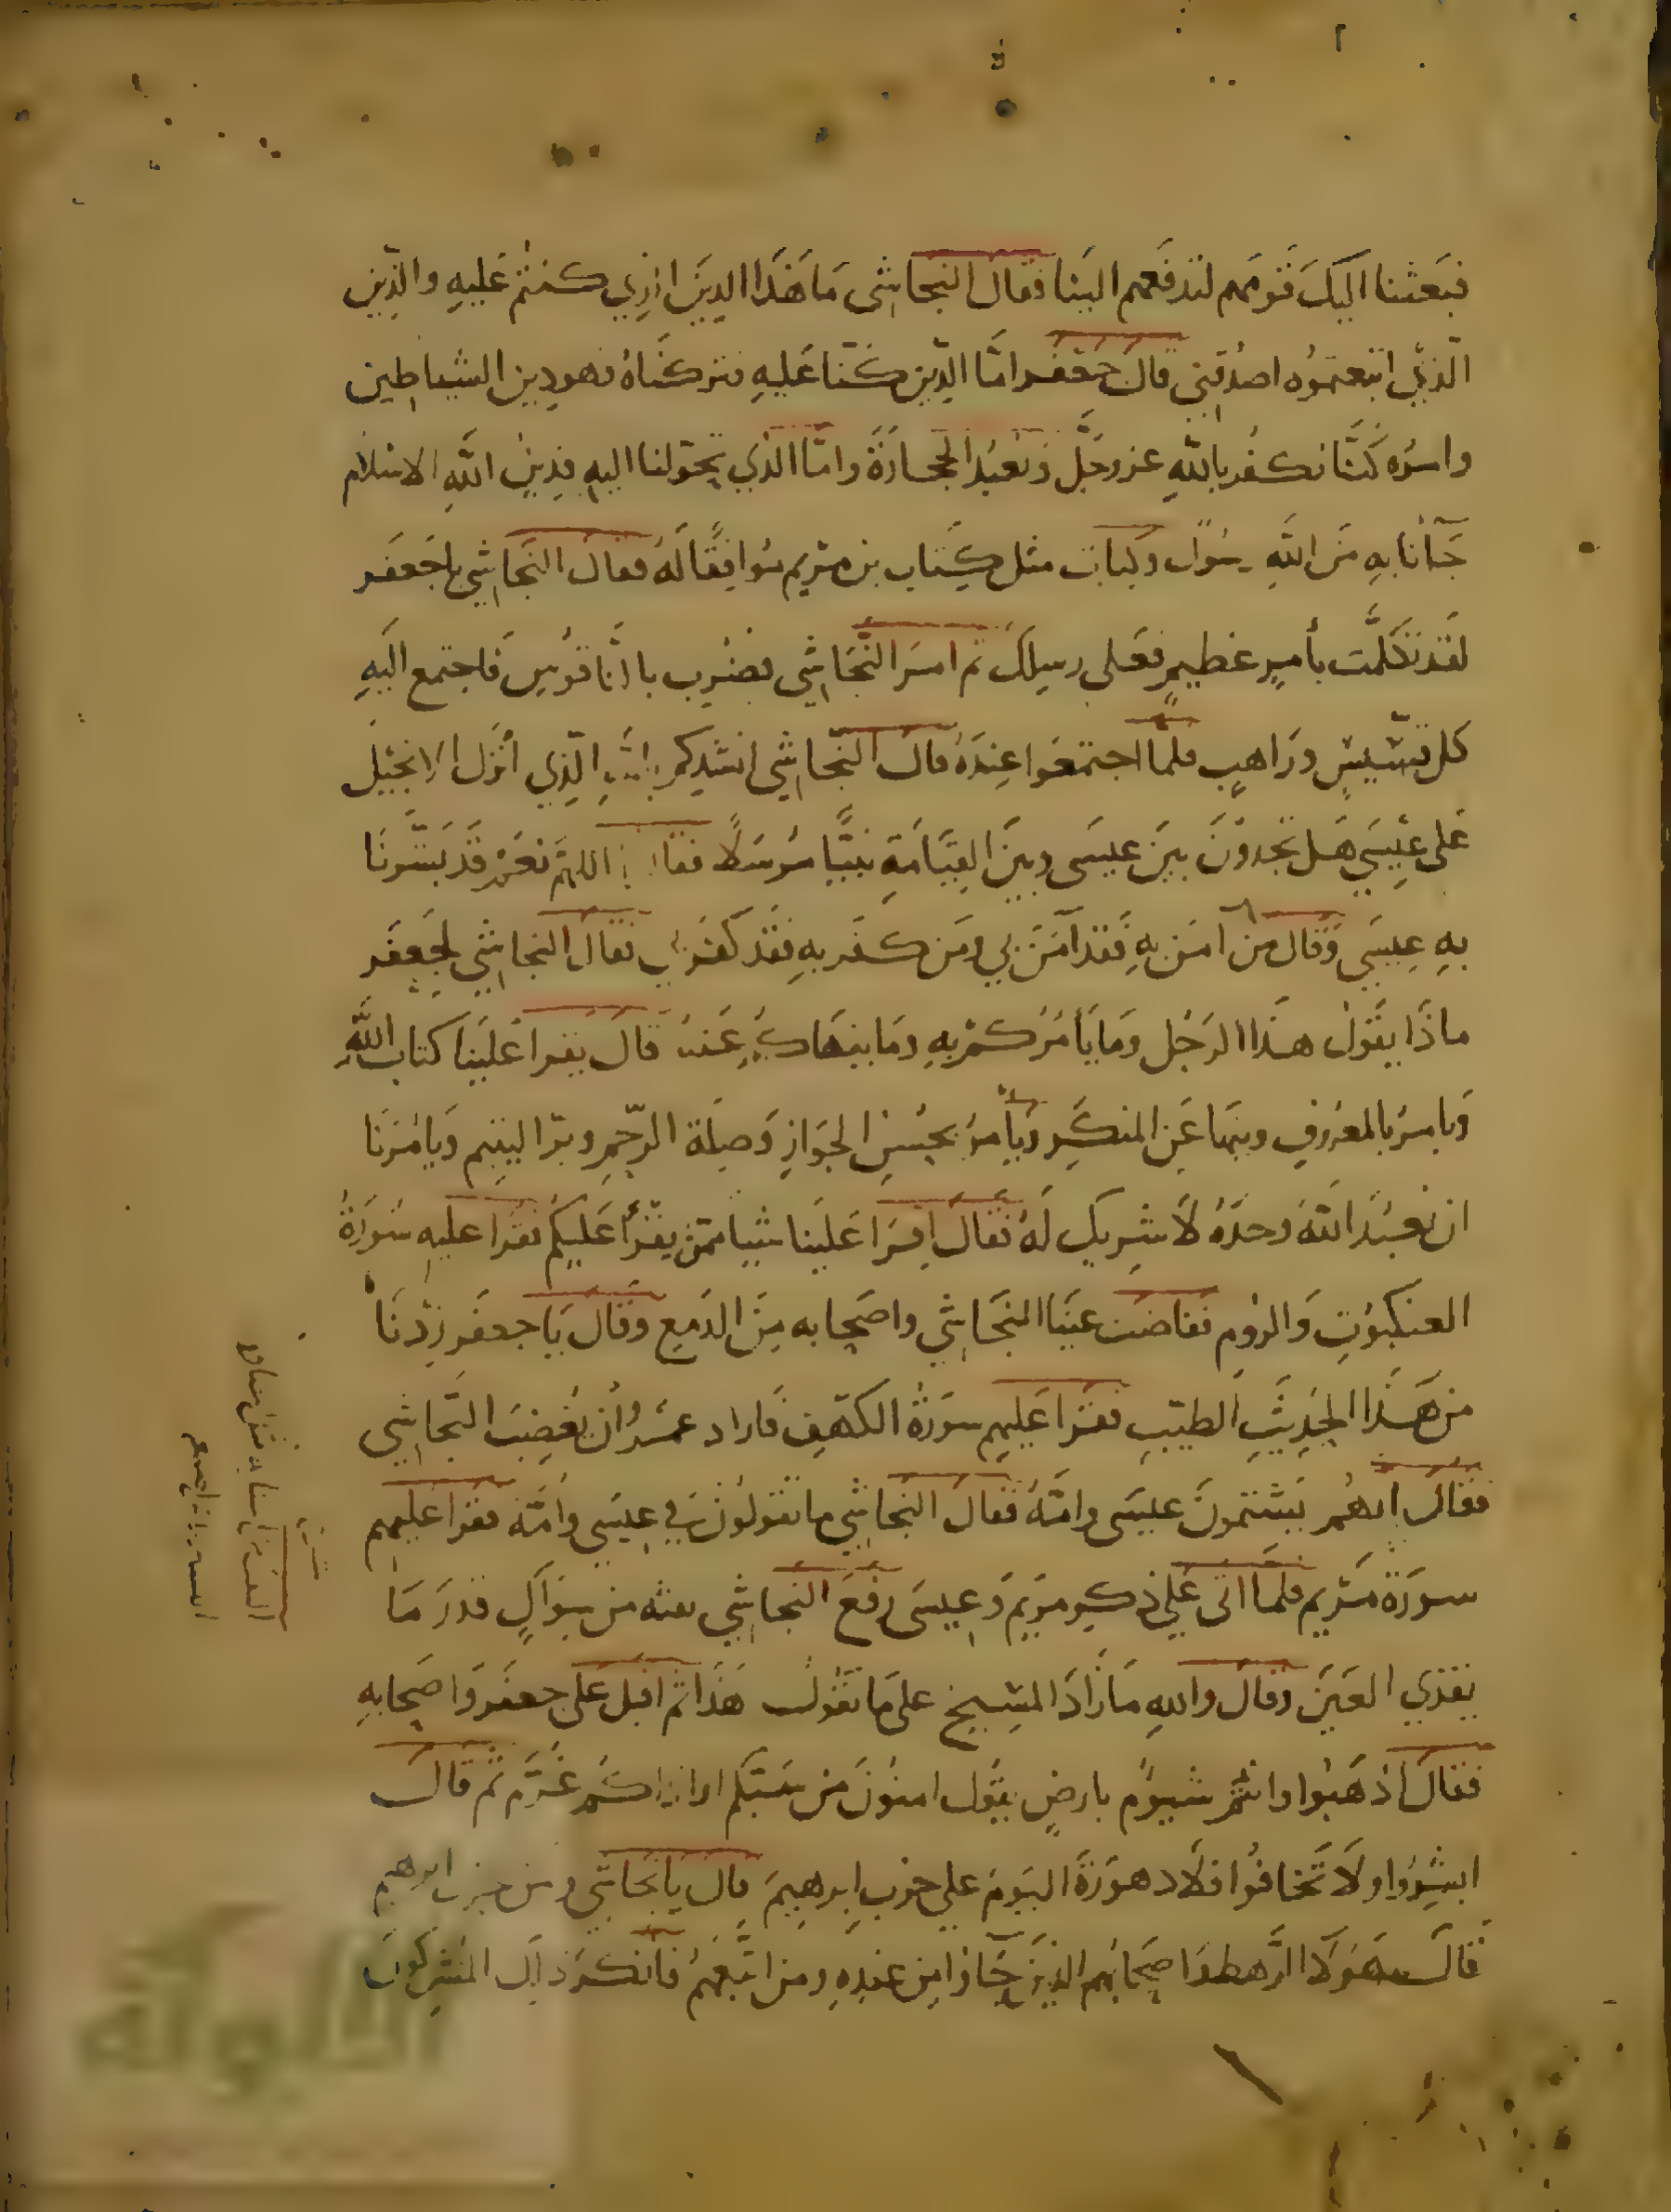 فبَعثنا اليكَ قومَهم لتدفعهم الينا فقال النجاشى مَا هَذا الدِينَ الذي كنتم عَليهِ والدِّين
الّذي اتبعتموُه اصدُقني قالَ جعفر امّا الدِّين كنّا عَليهِ فتركنَاهُ فهو دين الشياطين
وامرُه كنَّا نكفُر باللهِ عز وجَلَّ ونعبُد الحجارَة وامّا الذي تحوّلنا اليهِ فدِين اللهِ الاسلام
جَآنا بهِ مَن اللهِ رسُول وكتاب مثل كِتاب بن مَرْيم مُوافِقًا لَهُ فقال النجَاشي يا جَعفَر
لقَد تكَلّمت بأمرٍ عَظيمٍ فعلى رسلكَ ثم امرَ النَّجَاشي فضُرب بالنَّاقوُسِ فَاجتمع اليَهِ
كل قسّيسٍ ورَاهبٍ فلمّا اجتمعَوا عِندَهُ قالَ النّجاشي انشدكم باللهِ الّذي أنزَل الانجيَل
عَلى عيِسَي هَل تجدوُنَ بينَ عيسَى وبينَ القيَامَةِ نبيًّا مُرسَلاً فقالوا اللهمَّ نعَمْ قَد بَشّرنَا
بهِ عيسَي وَقال من آمنَ بهِ فَقد آمَنَ بي ومَن كفر بهِ فقَد كفر بي فقالَ النجاشي لجعفَر
ماذَا يقَوُل هذا الرَجُل ومَا يَأمُرُكم بهِ ومَا ينهَاكُم عَنهُ قالَ يقرا عَليَنا كتاب اللهِ
وَيامرُ بالمعرُوفِ وينهَا عَن المنكَرِ ويأمرُ بحُسنِ الجوَارِ وَصِلَة الرّحمِ وبرّ اليتيم وَيامُرنَا
ان نعبُدَ اللهَ وحدَهُ لاَ شرِيكَ لَهُ فقالَ اقرَا عَليَنا شيا ممّا يقرأ عَليكُم فقرَا عليهِ سُورَةُ
العنكبوُتِ وَالروُم ففاضت عيَنا النجَاشي واصحابه مِنَ الدَمعِ وقالَ يَا جعفَر زِدْنَا
من هَذا الحَدِيثِ الطيّبِ فقرَا عَليهِم سورَةُ الكهَفِ فاراد عَمرُو اُن يُغضِبَ النّجاشِي
فقالَ انهُم يَشتمونَ عيسَى وامّهُ فقالَ النجاشي ما تقولوُنَ في عِيسَي وَامّه فقرا عَليهم
سورَة مَرْيم فلمّا اتى عَلي ذكرِ مريَم وَعيسَى رفعَ النجاشي نفثه من سوَاكٍ قدرَ مَا
يقذي العَينَ وقال واللهِ مَا زَادَ المسِيح على ما تقوُلُ هَذَا ثم اقبَل عَلى جعفَر وَاصحابهِ
فقالَ اذهَبُوا وانتُم شيوُم بارضِي يقُول امنوُنَ من سَبّكم او اذاكُم غَرّم ثم قالَ
ابشِروُا ولاَ تَخافُوا فلا دهورَة اليَومَ علي حزب ابرهيمَ قال يا نجاشي ومن حِزب ابرهيم
قالَ هَوُلآ الرَّهط واصحابُهم الذينَ جَآؤا من عندِهِ ومن اتَّبعَهُم فانكرَ ذلكَ المُشرِكونَ